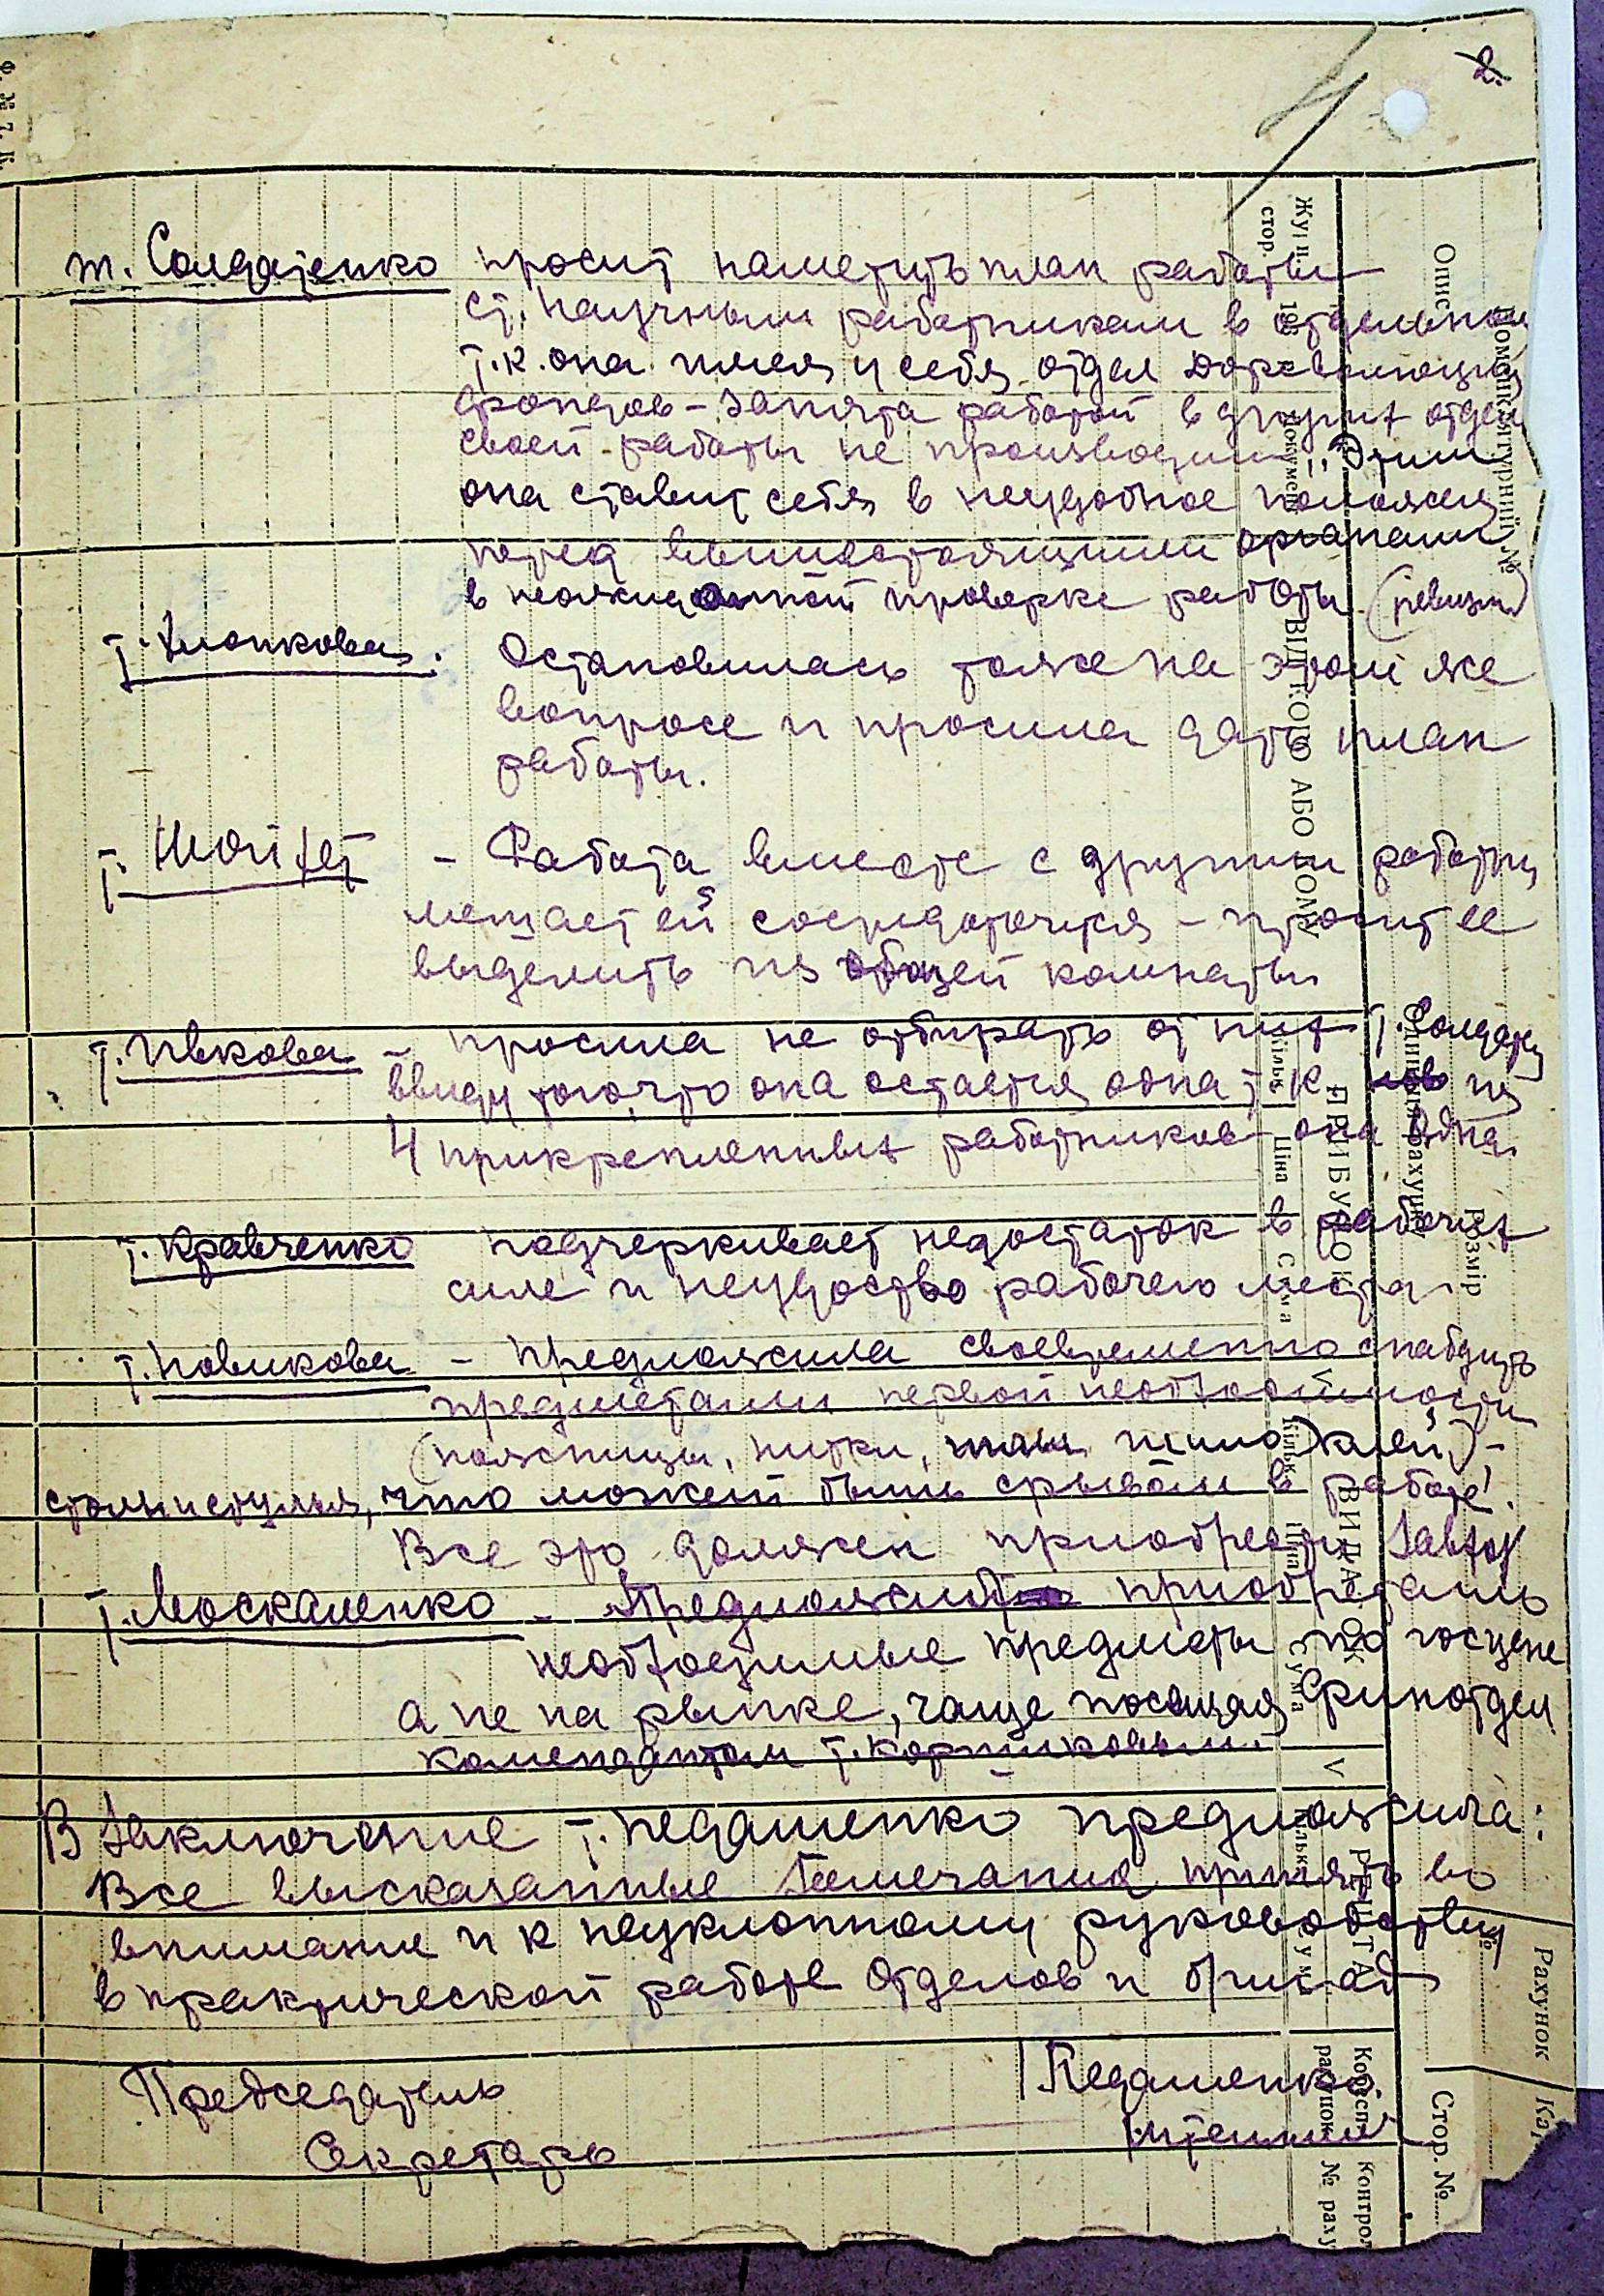 2.
т. Солдатенко просит наметить план работы
ст. научным работникам в отдельном
т.к. она имея у себя отдел дореволюцион
фондов – занята работой в других отдел
своей работы не производит. Этим
она ставит себя в неудобное положен
перед вышестоящими органами
в неожиданной проверке работы (ревизии)
т. Клочкова. Остановилась тоже на этом же
вопросе и просила дать план
работы.
т. Шойхет – Работа вместе с другими работн
мешает ей сосредоточися – просит ее
выделить из общей комнаты
т. Ивкова – просила не отбирать от них т. Солдат
ввиду того, что она остается одна т к из
4 прикрепленных работников – она одна.
т. Кравченко подчеркивает недостаток в рабочих
силе и неудоство рабочего места.
т. Новикова – предложила своевременно снабдить
предметами первой необходимости
(ножницы, нитки, шило) клей) –
столы и стулья, что может быть срывом в работе!
Все это должен приобрести Завхоз
т. Москаленко – Предложил приобретать
необходимые предметы по госцене
а не на рынке, чаще посещая Финотдел
комендантом т.
В заключение т. Недашенко предложила:
Все высказанные Замечания принять во
внимание и к неуклонному руководству
в практической работе отделов и бригад
Председатель Недашенко
Секретарь
Жур н.
стор.
Опис
Номенклятурний №
Документ
ВІД КОГО АБО КОМУ
Одиниця рахунку
Розмір
ПРИБУТОК
Кільк.
Ціна
Сума
V
ВИДАТОК
Кільк.
Ціна
Сума
V
РЕШТА
Кільк.
Сума
№
Рахунок
Кар
Кореспо
рахунок
Контрол
№ раху
Стор. №